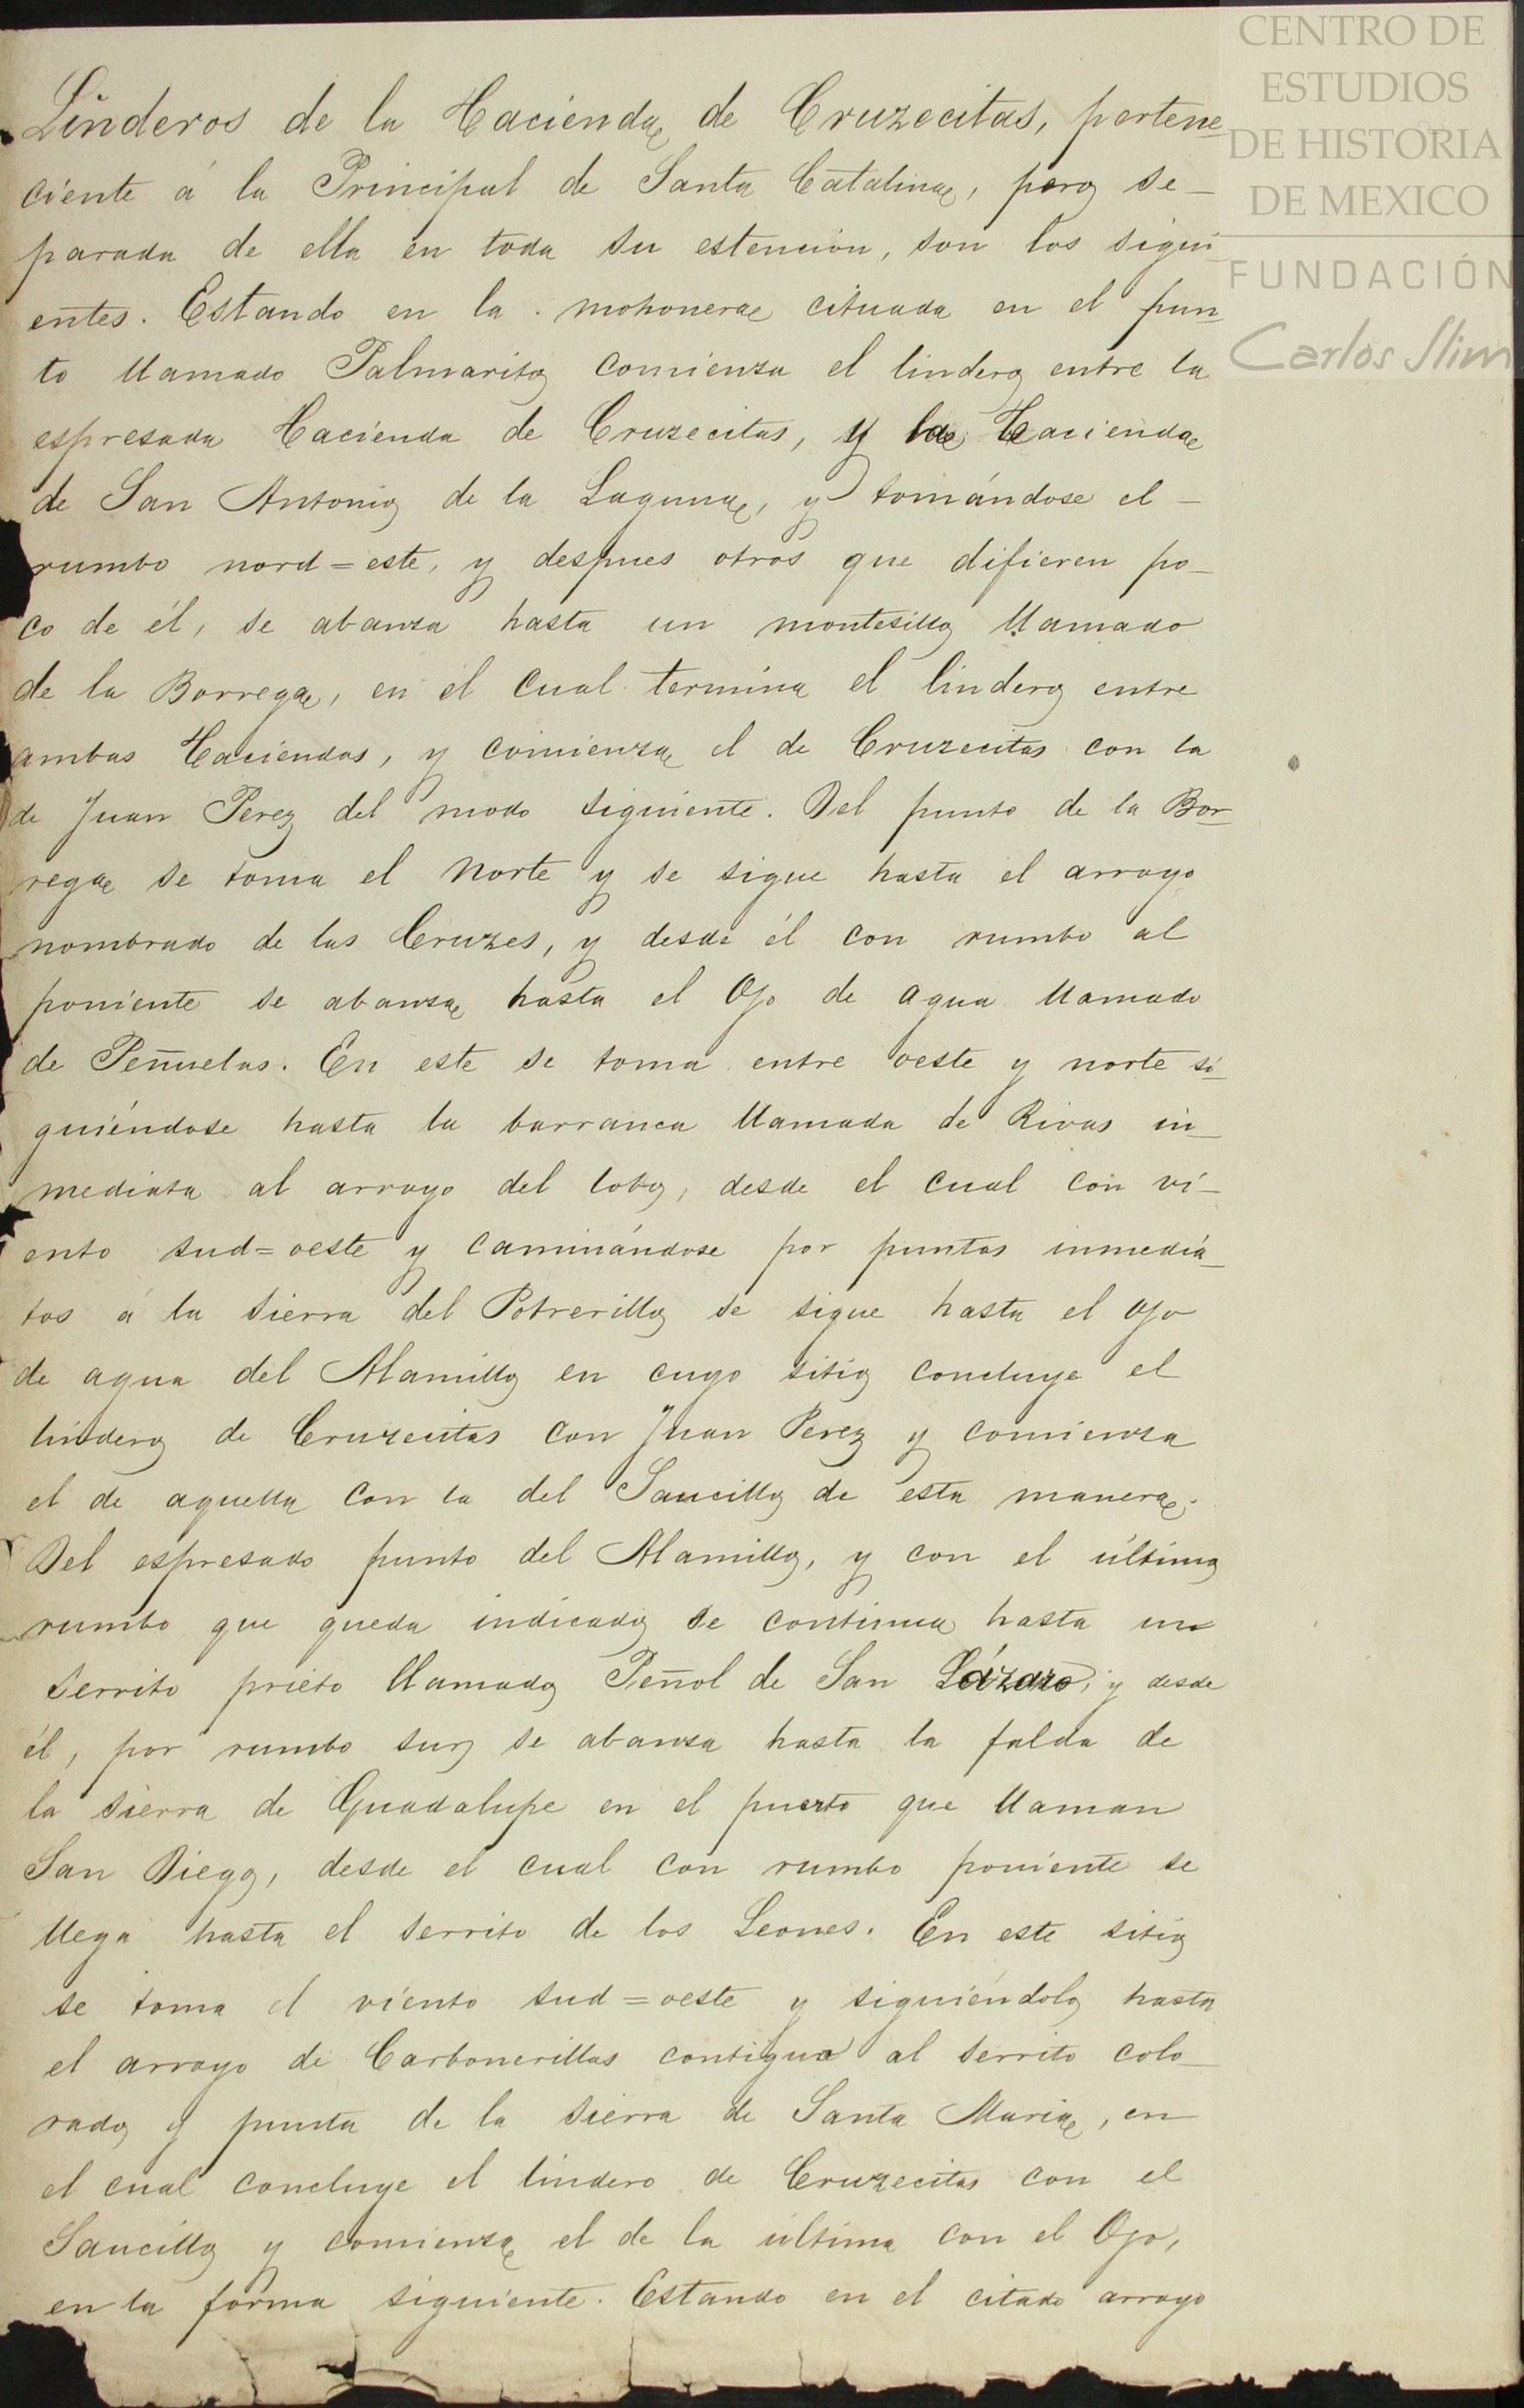 CENTRO DE
ESTUDIOS
DE HISTORIA
DE MEXICO
FUNDACIÓN
Carlos Slim
Linderos de la Hacienda de Cruzecitas, pertene
ciente á la Principal de Santa Catalina, pero se-
parada de ella en toda su estencion, son los sigui
entes. Estando en la mohonera cituada en el pun
to llamado Palmarito comienza el lindero entre la
espresada Hacienda de Cruzecitas, y la Hacienda
de San Antonio de la Laguna, y tomándose el-
rumbo nord=este, y despues otros que difieren po-
co de él, se abanza hasta un montesillo llamado
de la Borrega, en el cual termina el lindero entre
ambas Haciendas, y comienza el de Cruzecitas con la
de Juan Perez del modo siguiente. Del punto de la Bor-
rega se toma el Norte y se sigue hasta el arroyo
nombrado de las Cruzes, y desde él con rumbo al
poniente se abanza hasta el Ojo de agua llamado
de Peñuelas. En este se toma entre oeste y norte si-
guiéndose hasta la barranca llamada de Rivas in-
mediata al arroyo del lobo, desde el cual con vi-
ento sud=oeste y caminándose por puntos inmedia-
tos á la Sierra del Potrerillo se sigue hasta el ojo
de agua del Alamillo en cuyo sitio concluye el
lindero de Cruzecitas con Juan Perez y comienza
el de aquella con la del Saucillo de esta manera.
Del espresado punto del Alamillo, y con el último
rumbo que queda indicado se continua hasta un
serrito prieto llamado Peñol de San Lázaro, y desde
él, por rumbo sur se abanza hasta la falda de
la sierra de Guadalupe en el puerto que llaman
San Diego, desde el cual con rumbo poniente se
llega hasta el serrito de los Leones. En este sitio
se toma el viento sud=oeste y siguiéndolo hasta
el arroyo de Carbonerillas contiguo al serrito colo-
rado y punta de la sierra de Santa Maria, en
el cual concluye el lindero de Cruzecitas con el
Saucillo y comienza el de la última con el Ojo,
en la forma siguiente. Estando en el citado arroyo